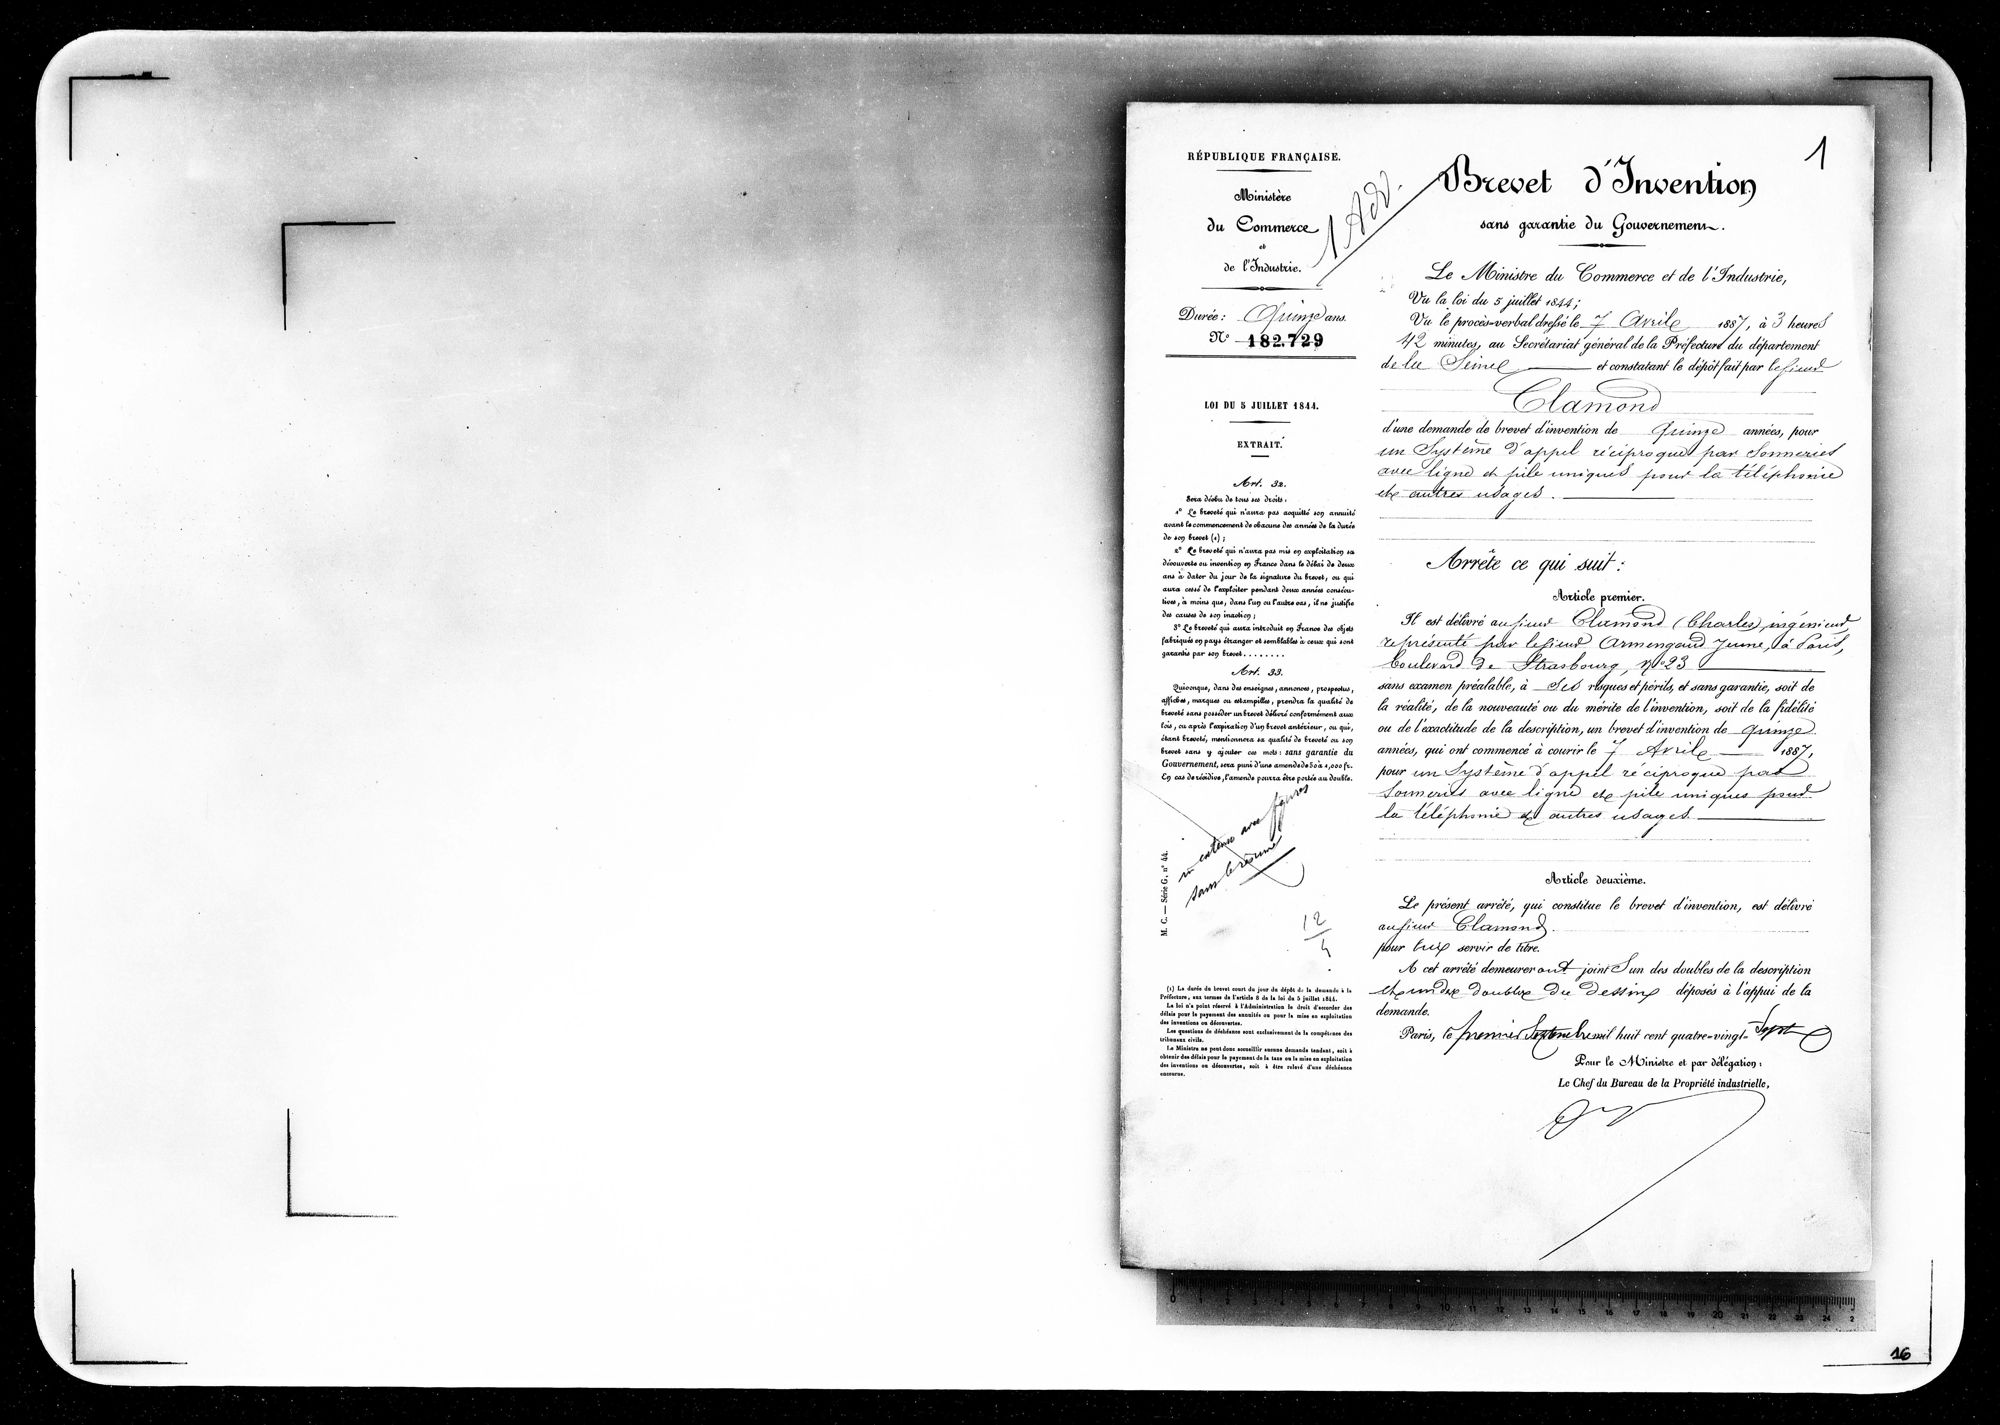 RÉPUBLIQUE FRANÇAISE.
Ministère
du Commerce
et
de l'Industrie.
Durée: Quinze ans.
N° 182.729
LOI DU 5 JUILLET 1844.
EXTRAIT.
Art. 32.
Sera déchu de tous ses droits:
1° Le breveté qui n'aura pas acquitté son annuité
avant le commencement de chacune des années de la durée
de son brevet (1);
2° Le breveté qui n'aura pas mis en exploitation sa
découverte ou invention en France dans le délai de deux
ans à dater du jour de la signature du brevet, ou qui
aura cessé de l'exploiter pendant deux années consécu-
tives, à moins que, dans l'un ou l'autre cas, il ne justifie
des causes de son inaction;
3° Le breveté qui aura introduit en France des objets
fabriqués en pays étranger et semblables à ceux qui sont
garantis par son brevet........
Art. 33.
Quiconque, dans des enseignes, annonces, prospectus,
affiches, marques ou estampilles, prendra la qualité de
breveté sans posséder un brevet délivré conformément aux
lois, ou après l'expiration d'un brevet antérieur, ou qui,
étant breveté, mentionnera sa qualité de breveté ou son
brevet sans y ajouter ces mots: sans garantie du
Gouvernement, sera puni d'une amende de 50 à 1,000 fr.
En cas de récidive, l'amende pourra être portée au double.
in extenso avec figures
sans le résumé
M. C. — Série G, n° 44.
12
4
(1) La durée du brevet court du jour du dépôt de la demande à la
Préfecture, aux termes de l'article 8 de la loi du 5 juillet 1844.
La loi n'a point réservé à l'Administration le droit d'accorder des
délais pour le payement des annuités ou pour la mise en exploitation
des inventions ou découvertes.
Les questions de déchéance sont exclusivement de la compétence des
tribunaux civils.
Le Ministre ne peut donc accueillir aucune demande tendant, soit à
obtenir des délais pour le payement de la taxe ou la mise en exploitation
des inventions ou découvertes, soit à être relevé d'une déchéance
encourue.
1 Add.
1
Brevet d'Invention
sans garantie du Gouvernement.
Le Ministre du Commerce et de l'Industrie,
Vu la loi du 5 juillet 1844;
Vu le procès-verbal dressé le 7 Avril 1887, à 3 heures
42 minutes, au Secrétariat général de la Préfecture du département
de la Seine et constatant le dépôt fait par le sieur
Clamond
d'une demande de brevet d'invention de quinze années, pour
un Système d'appel réciproque par Sonneries
avec ligne et pile uniques pour la téléphonie
et autres usages.
Arrête ce qui suit:
Article premier.
Il est délivré au sieur Clamond (Charles), ingénieur,
représenté par le sieur Armengaud jeune, à Paris,
boulevard de Strasbourg, n° 23
sans examen préalable, à ses risques et périls, et sans garantie, soit de
la réalité, de la nouveauté ou du mérite de l'invention, soit de la fidélité
ou de l'exactitude de la description, un brevet d'invention de quinze
années, qui ont commencé à courir le 7 Avril 1887,
pour un Système d'appel réciproque par
Sonneries avec ligne et pile uniques pour
la téléphonie et autres usages.
Article deuxième.
Le présent arrêté, qui constitue le brevet d'invention, est délivré
au sieur Clamond
pour lui servir de titre.
A cet arrêté demeureront joints un des doubles de la description
et un des doubles du dessin déposés à l'appui de la
demande.
Paris, le premier Septembre mil huit cent quatre-vingt-Sept
Pour le Ministre et par délégation:
Le Chef du Bureau de la Propriété industrielle,
16